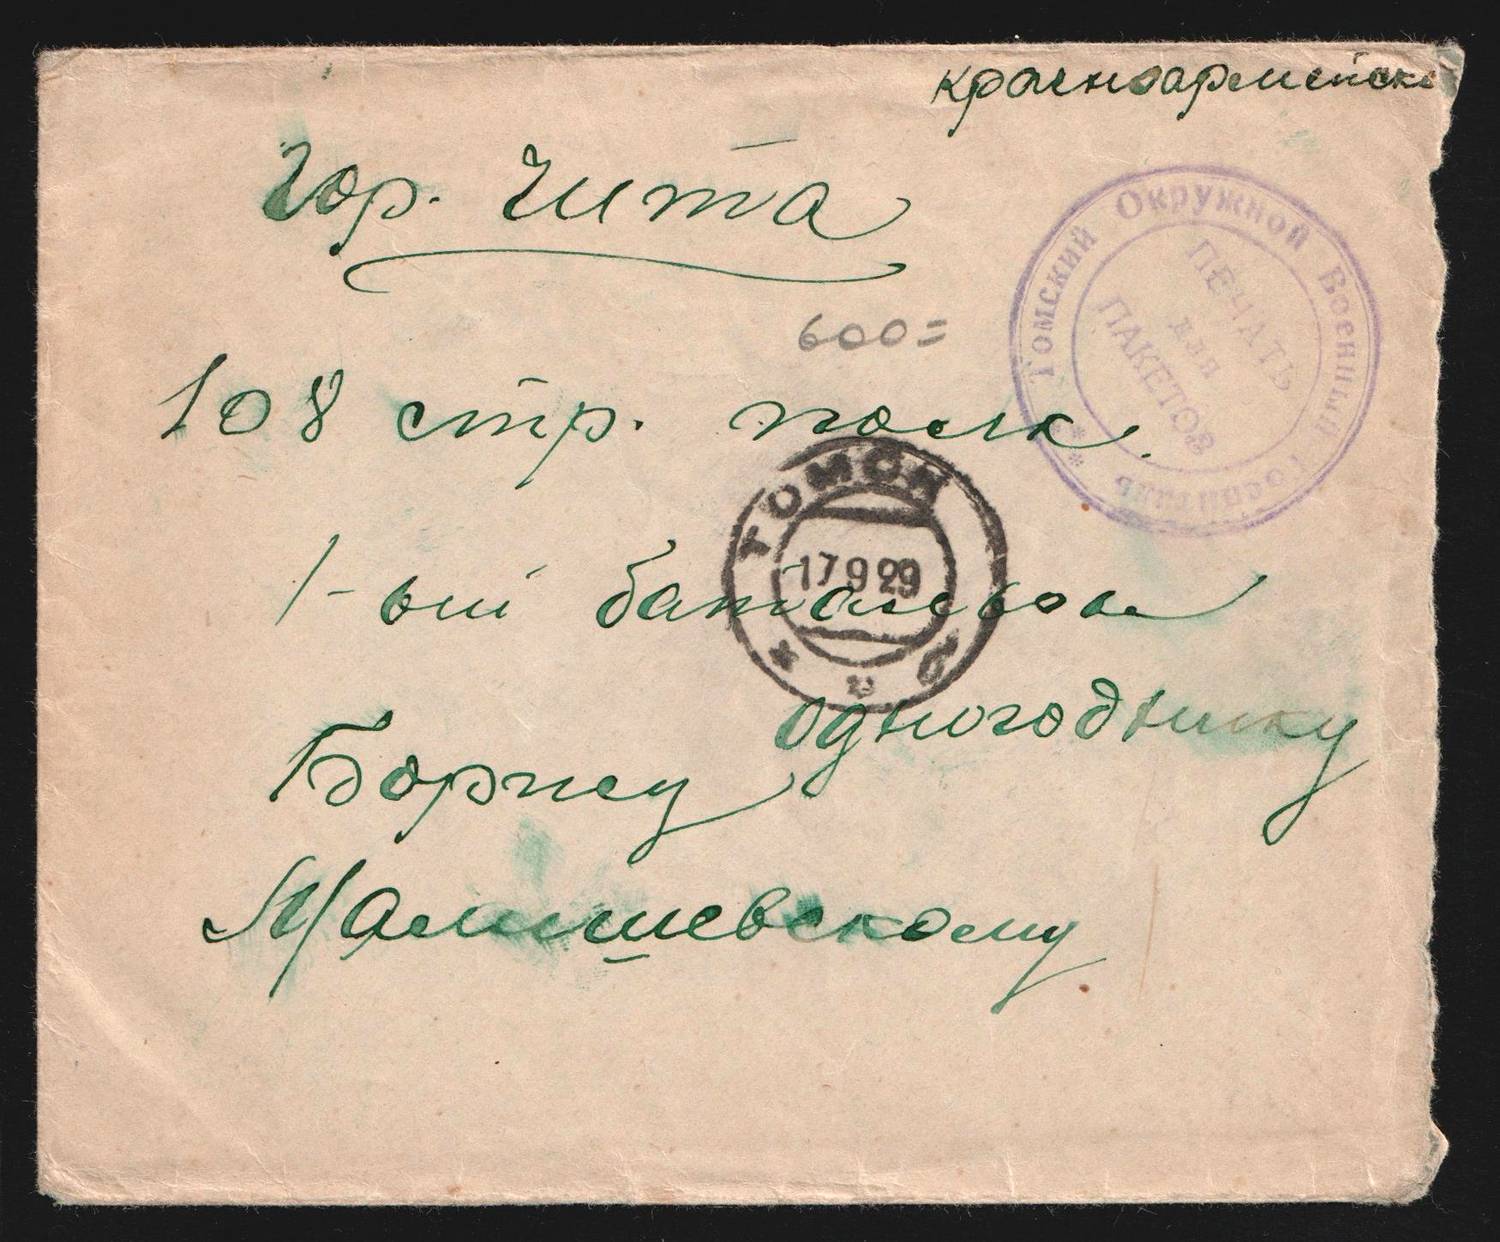 Красноармейск
Гор. Чита
Томский Окружной Военный Госпиталь
ПЕЧАТЬ
для
ПАКЕТОВ
600=
108 стр. полк.
ТОМСК
17 9 29
1-ый батальон
одногоднику
Борису
Малишевскому